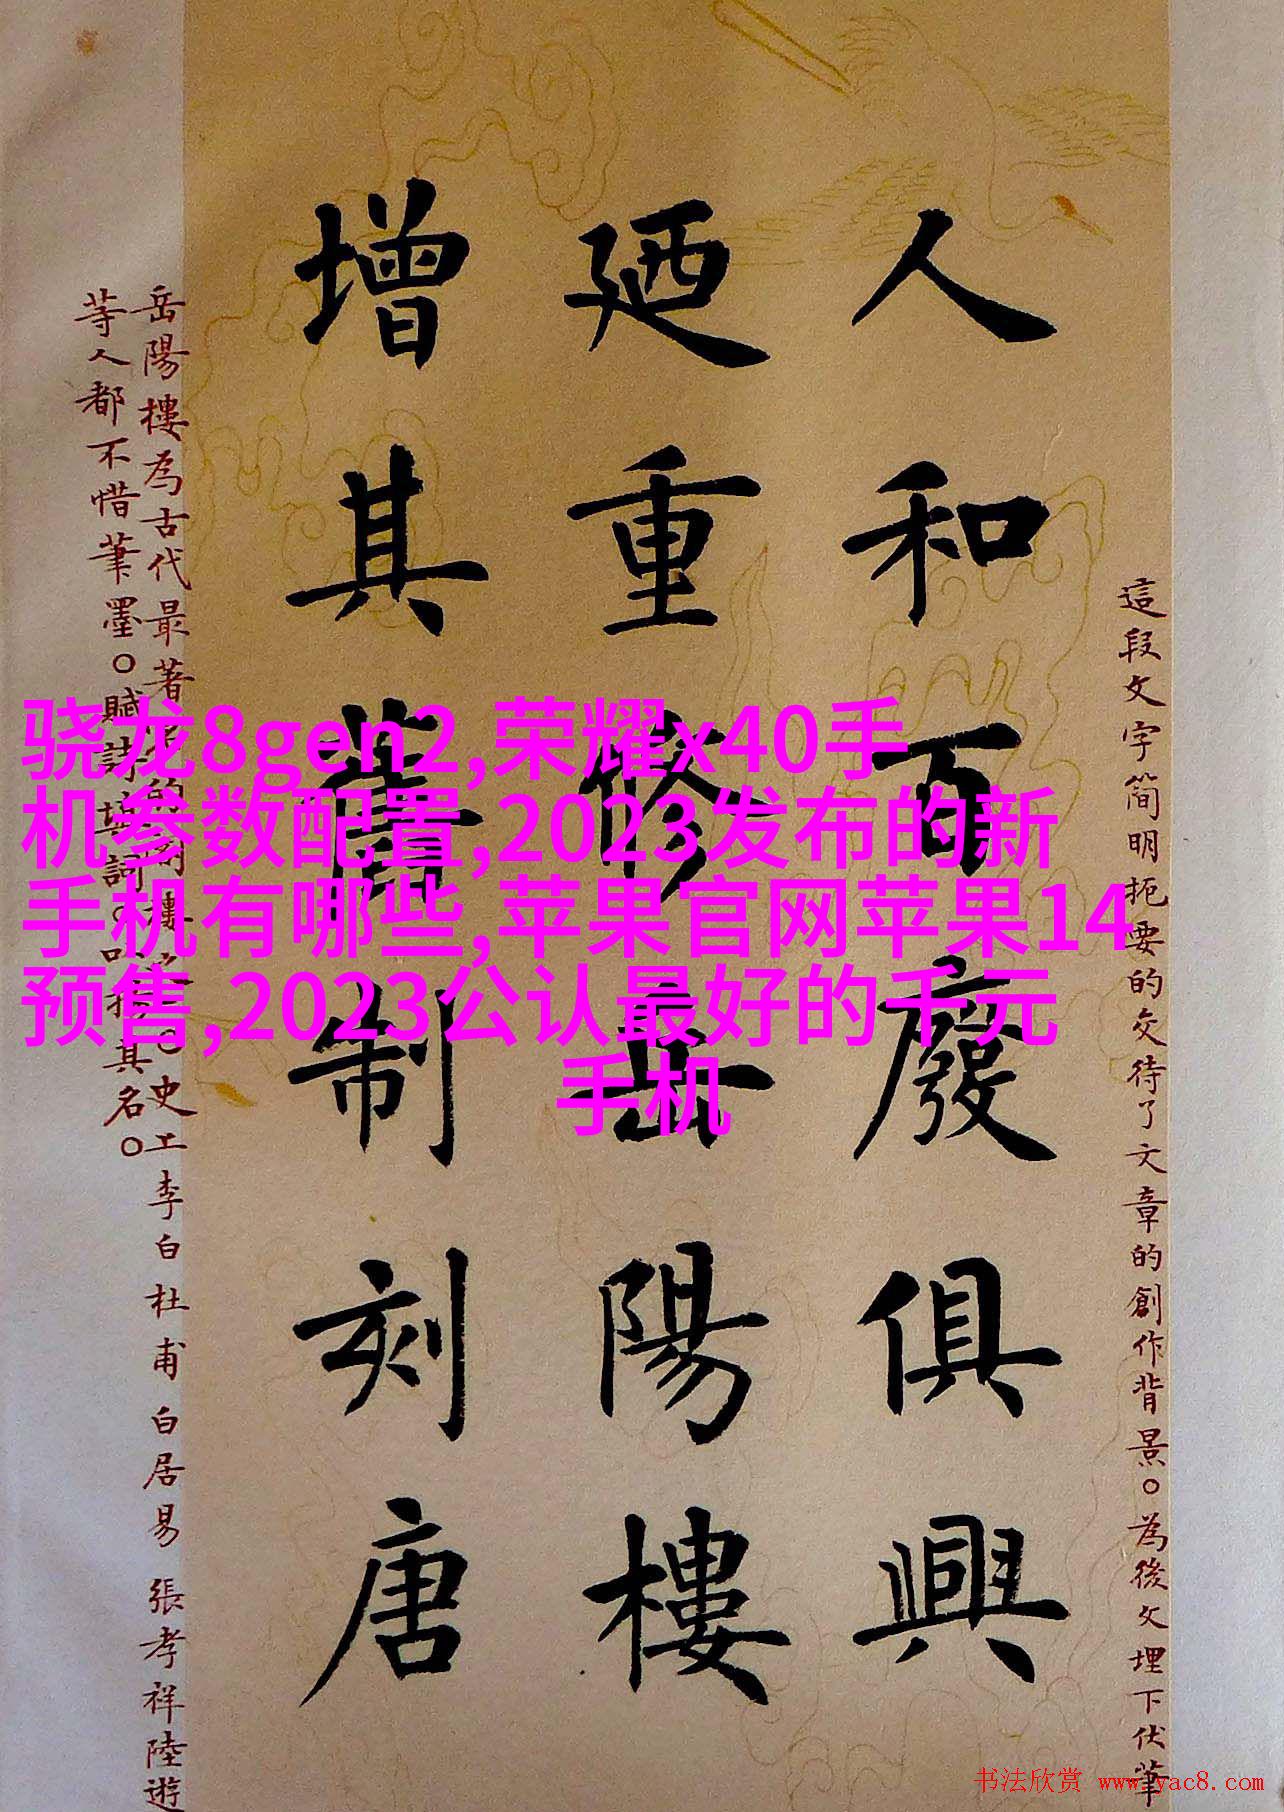 這段文字简明扼要的交待了文章的創作背景。為後文埋下伏筆
人和百廢俱興
廼重修岳陽樓
增其舊制刻唐
岳陽樓為古代最著
史上李白 杜甫 白居易 張孝祥陸遊
等人都不惜筆墨。賦詩
其名。
骁龙8gen2,荣耀x40手
机参数配置,2023发布的新
手机有哪些,苹果官网苹果14
预售,2023公认最好的千元
手机
书法欣赏 www.yac8.com